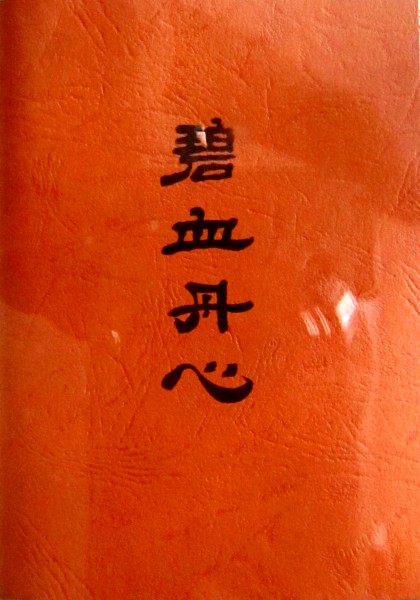 碧血丹心